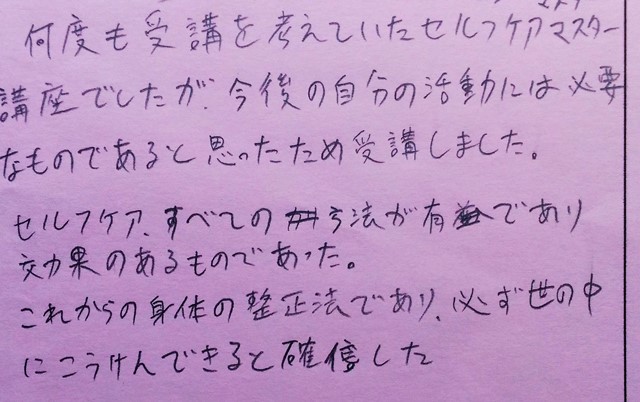 何度も受講を考えていたセルフケアマスター
講座でしたが、今後の自分の活動には必要
なものであると思ったため受講しました。
セルフケア、すべての方法が有益であり
効果のあるものであった。
これからの身体の整正法であり、必ず世の中
にこうけんできると確信した